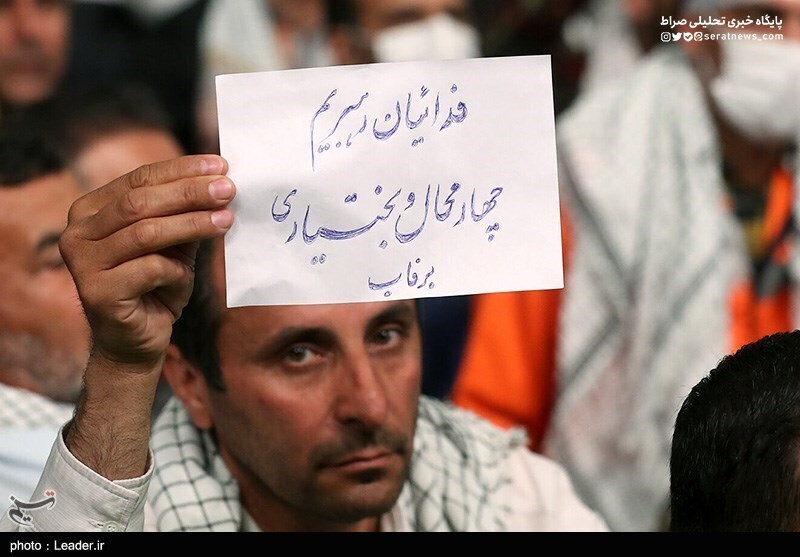 پایگاه خبری تحلیلی صراط
seratnews.com
فدائیان رهبریم
چهارمحال و بختیاری
برفاب
تسنیم
photo : Leader.ir